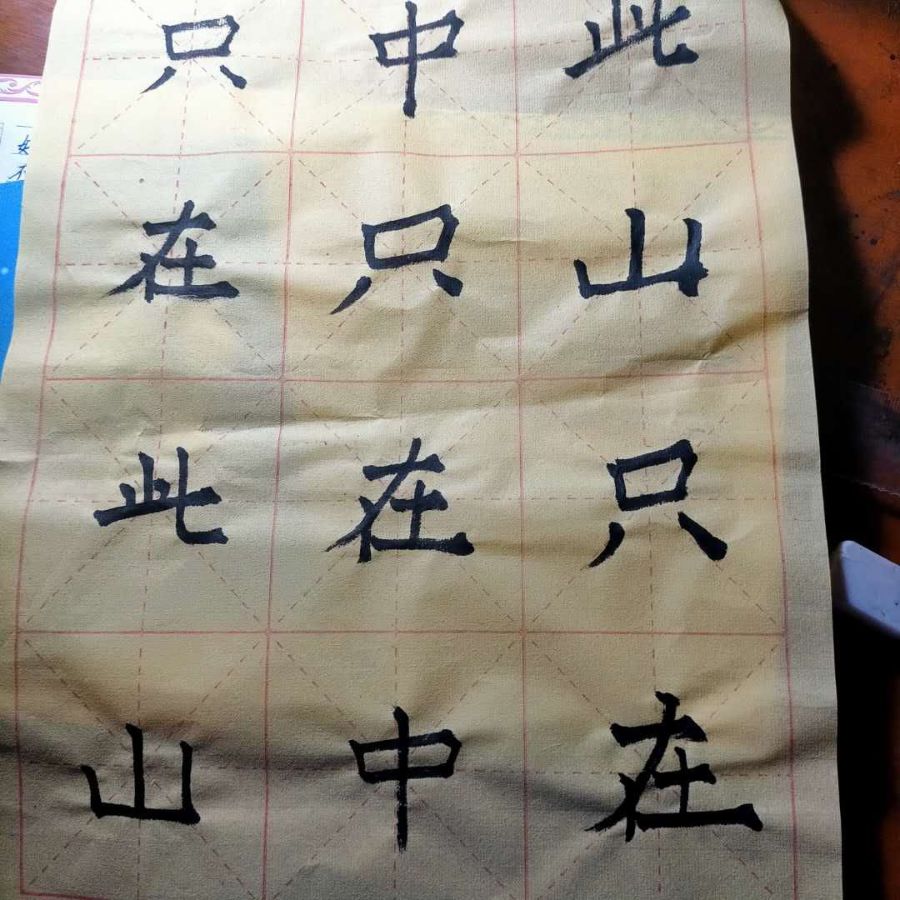 只在此山
中只在中
此山只在